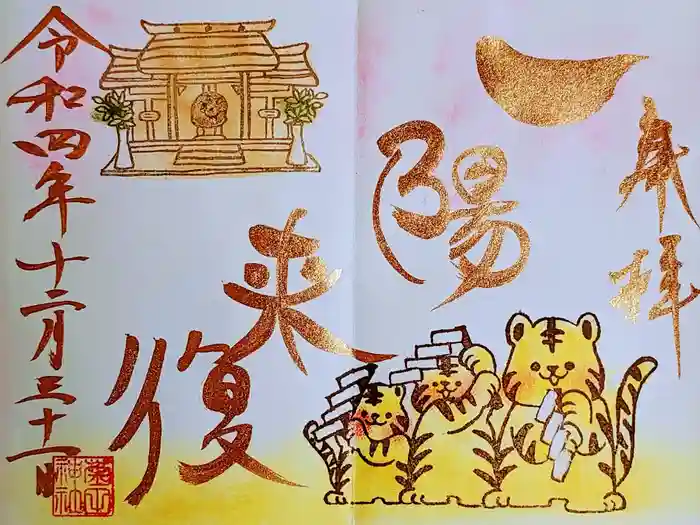 奉拝
一陽
来復
令和四年十二月三十一日
葉山
神社